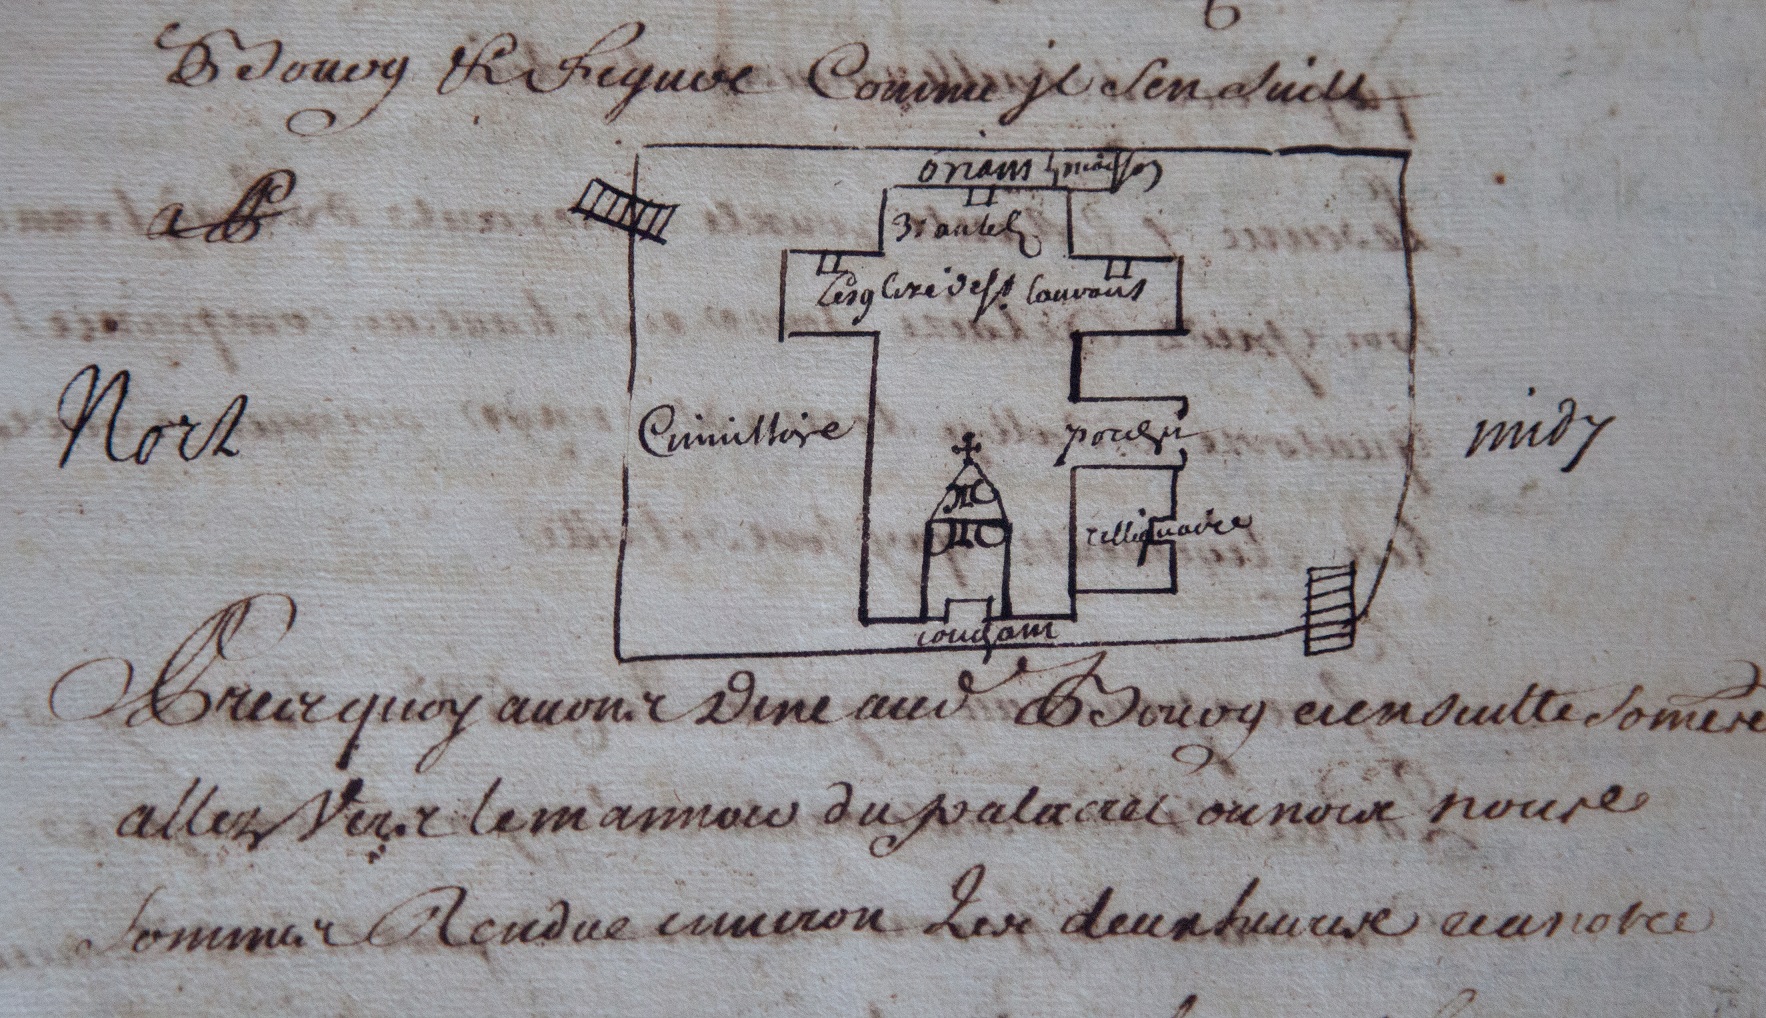 Bourg & figure Comme jl sen suilt
oriant
3 autelz
Lesglixe de st Lauvans
Nort
Cimittoire
porchz
midy
relliquaire
couchant
quoy avons Dine aud Bourg et ensuitte sommes
allez vers le mannoir du palacret ou nous nous
sommes Rendue environ Les deux heures et a notre